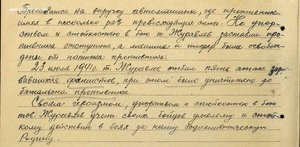 бросились на выручку автомашины, где противник
имел в несколько раз превосходящие силы. Но упор-
ством и стойкостью в бою т. Журавлев заставил про-
тивника отступить, а машина и шофер были освобож-
дены от натиска противника.
23 июля 1941г. т. Журавлев отбил пять атак
вавшихся фашистов, при этом было уничтожено до
батальона противника.
Своим героизмом, упорством и стойкостью в бою
тов. Журавлев учит своих бойцов умелому и стой-
кому действию в боях за нашу социалистическую
Родину.